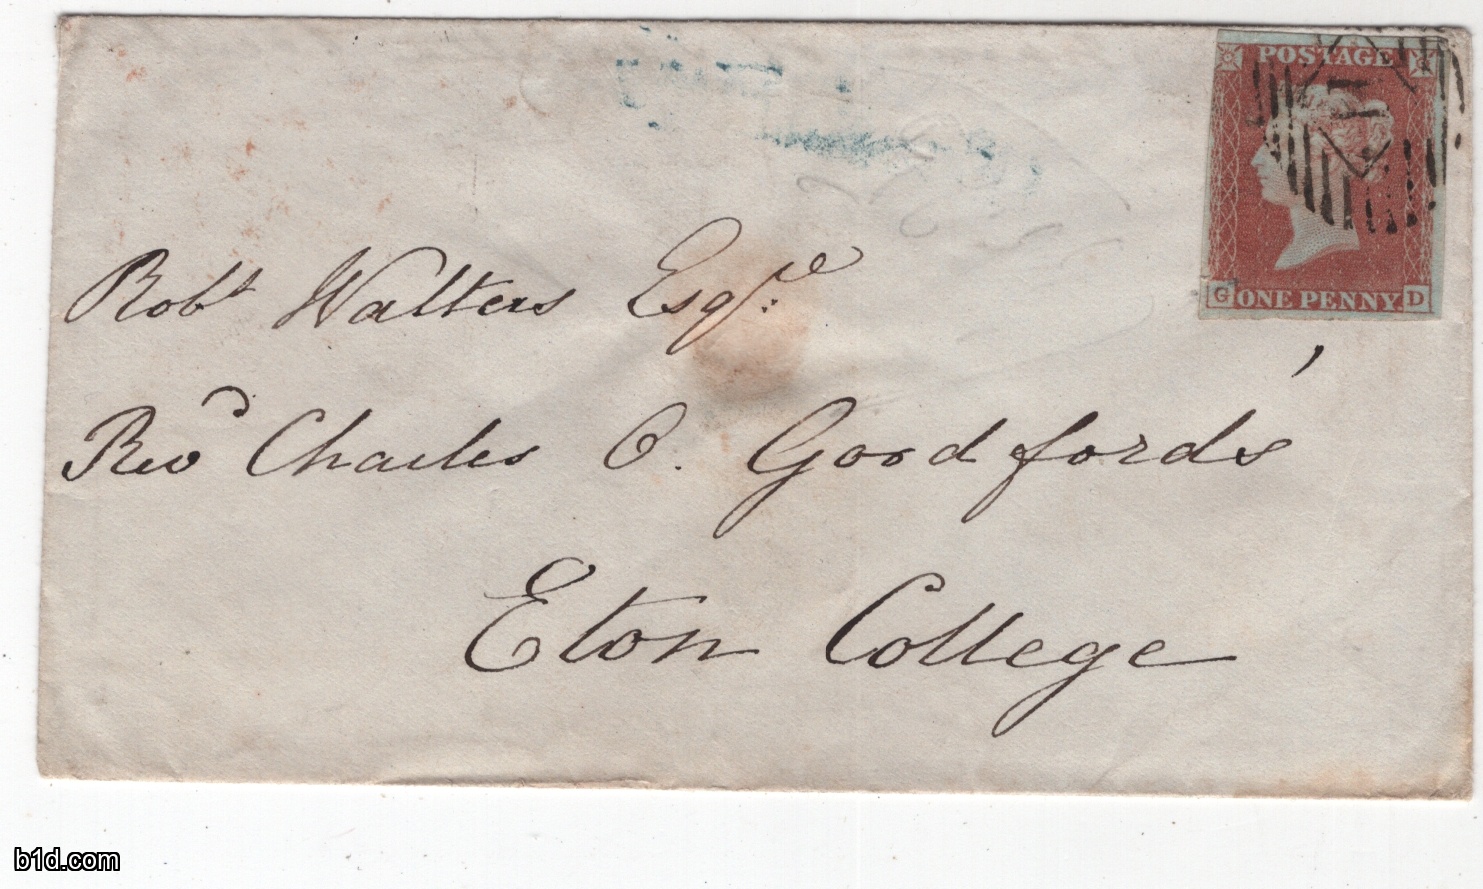 POSTAGE
G ONE PENNY. D
Robt Walters Esqre:
Revd Charles O. Goodford's
Eton College
b1d.com